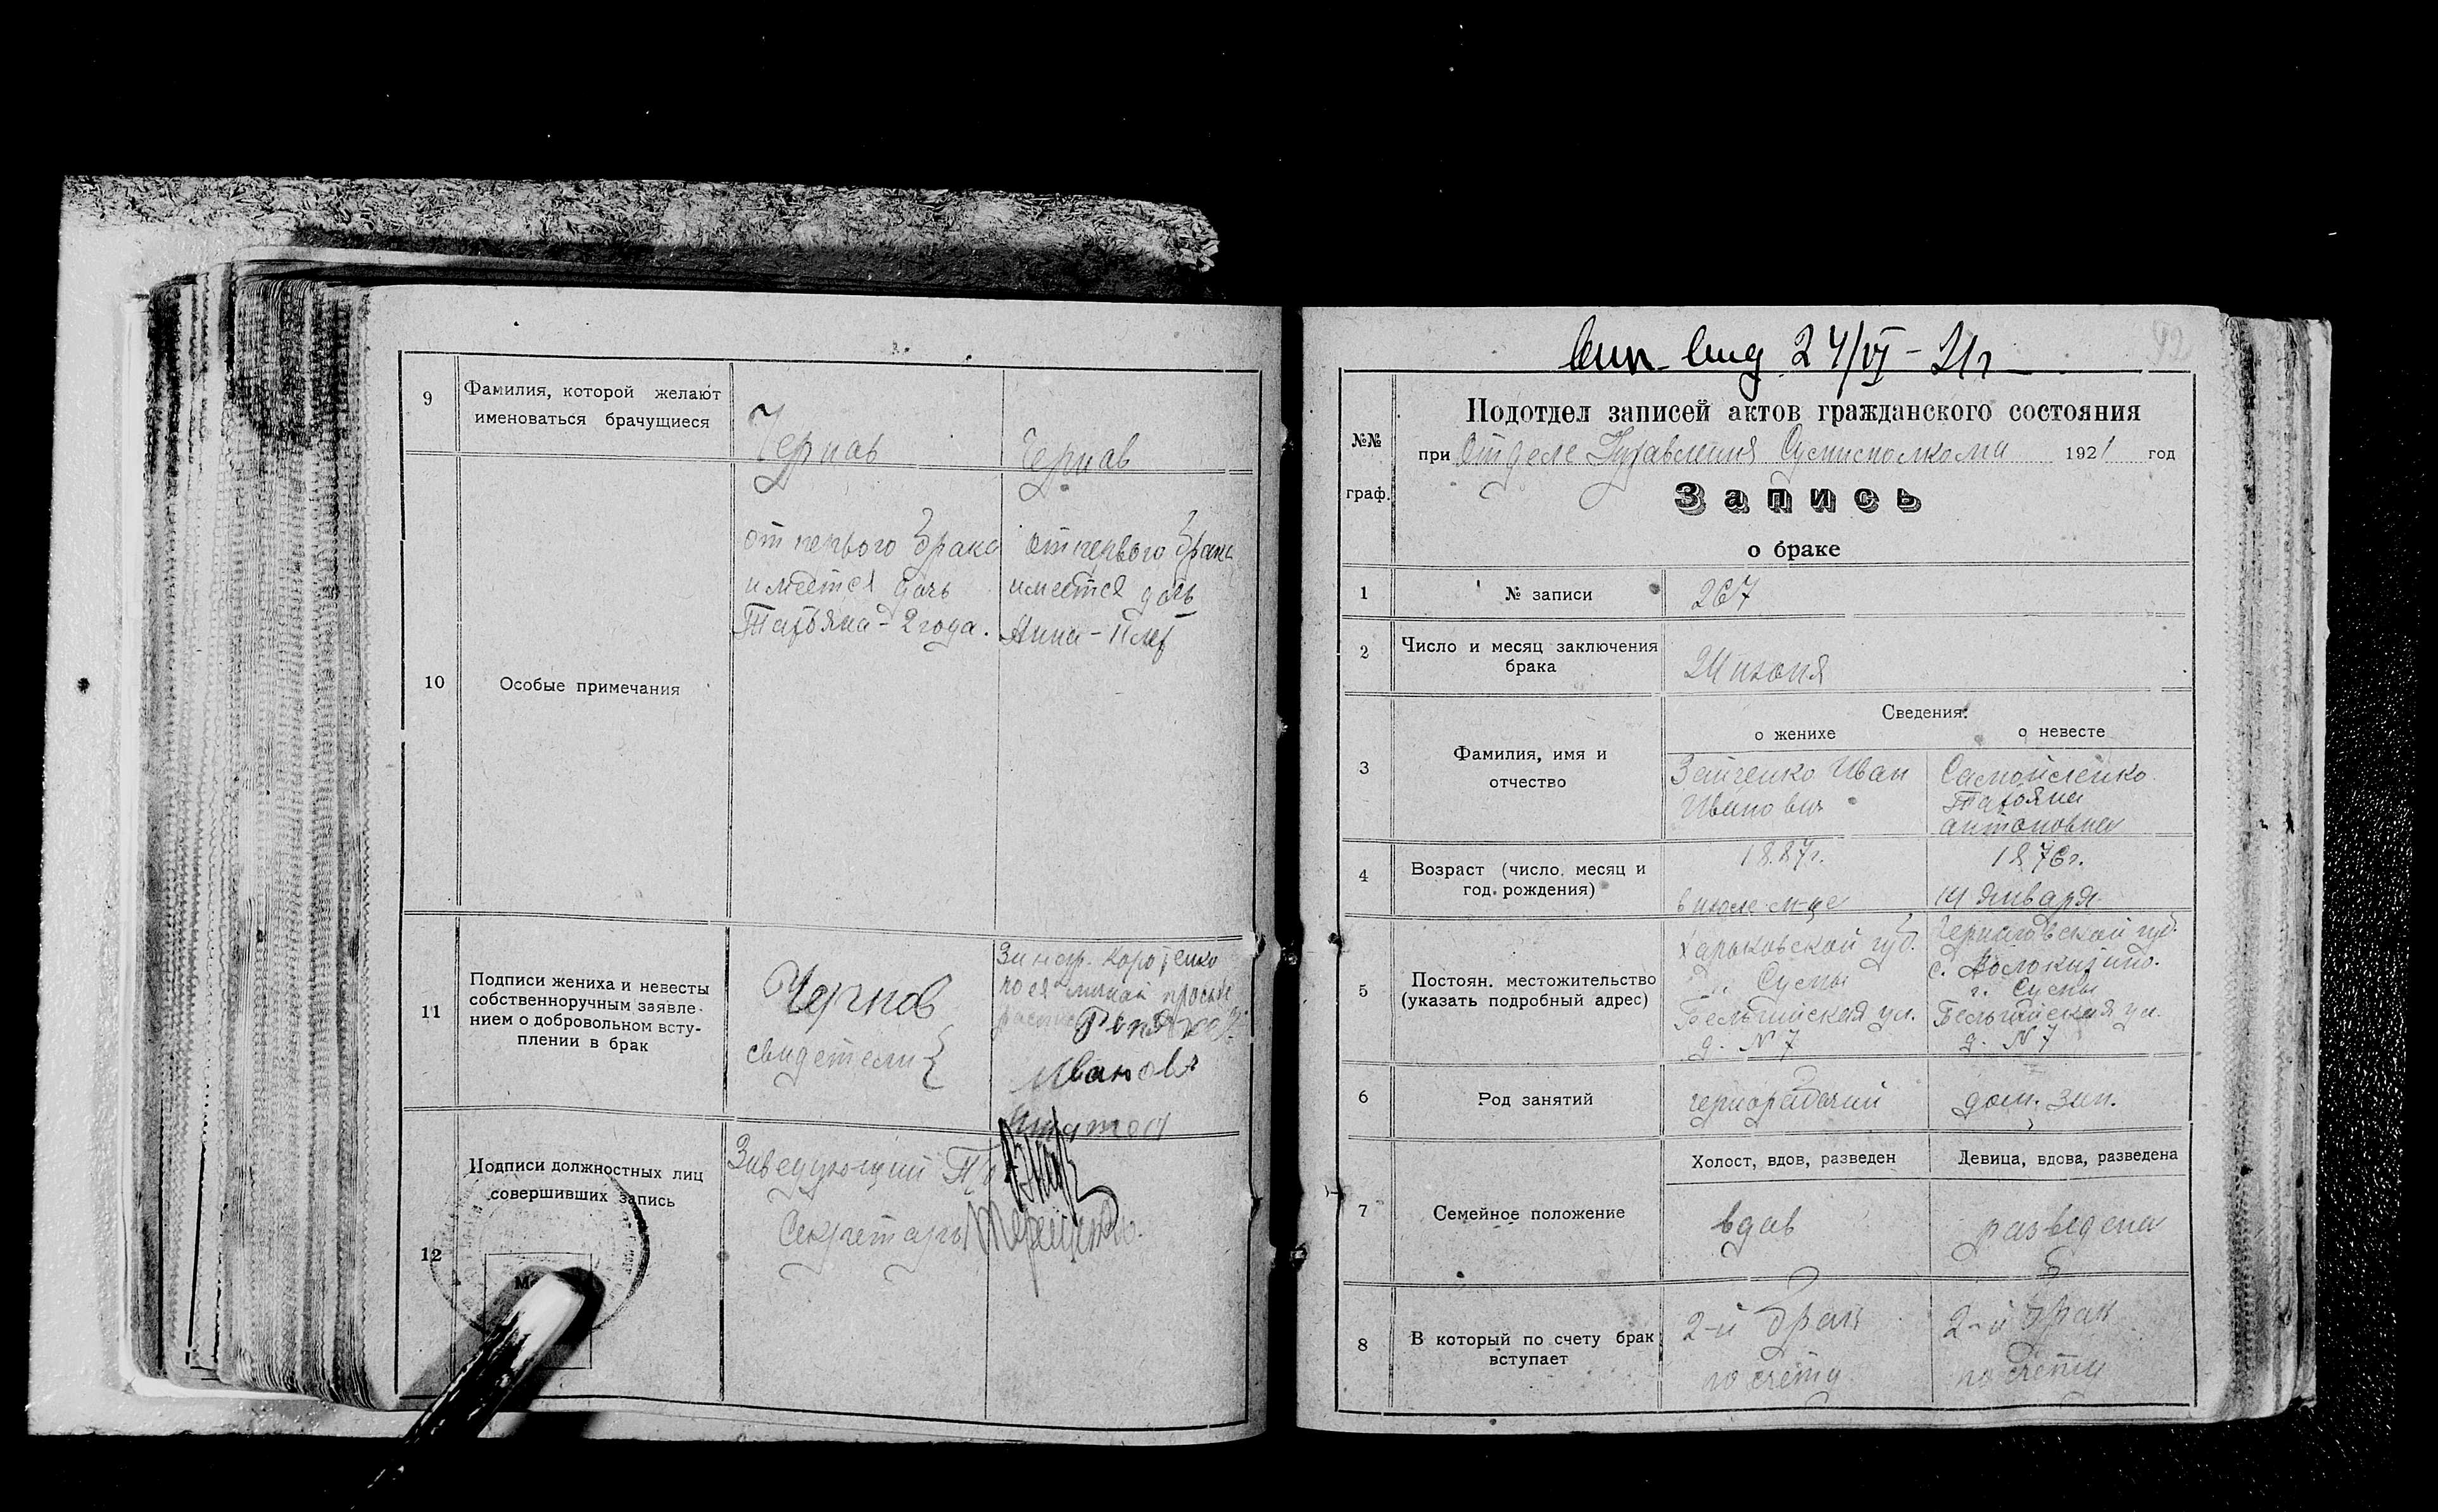 9
Фамилия, которой желают
именоваться брачущиеся
Чернов
Чернов
10
Особые примечания
от первого брака
имеется дочь
Татьяна - 2 года.
от первого брака
имеется дочь
Анна - 11 лет
11
Подписи жениха и невесты
собственноручным заявле-
нием о добровольном всту-
плении в брак
Чернов
свидетели {
За негр. Коротенко
по ея личной просьбе
Иванов
12
Подписи должностных лиц
совершивших запись
Заведующий
Секретарь
24/VI - 21 г
92
№№
граф.
Подотдел записей актов гражданского состояния
при Отделе Управления Сумисполкома 1921 год
Запись
о браке
1
№ записи
267
2
Число и месяц заключения
брака
24 июня
3
Фамилия, имя и
отчество
Сведения:
о женихе
о невесте
Зайченко Иван
Иванович
Самойленко
Татьяна
Антоновна
4
Возраст (число, месяц и
год рождения)
1887г.
в июле м-це
1876г.
14 января
5
Постоян. местожительство
(указать подробный адрес)
Харьковской губ.
г. Сумы
Бельгийская ул.
д. N 7
Черниговской губ.
с. Волокитино.
г. Сумы
Бельгийская ул.
д. N 7
6
Род занятий
чернорабочий
дом. зан.
7
Семейное положение
Холост, вдов, разведен
Девица, вдова, разведена
вдов
разведена
8
В который по счету брак
вступает
2-й брак
по счету
2-й брак
по счету